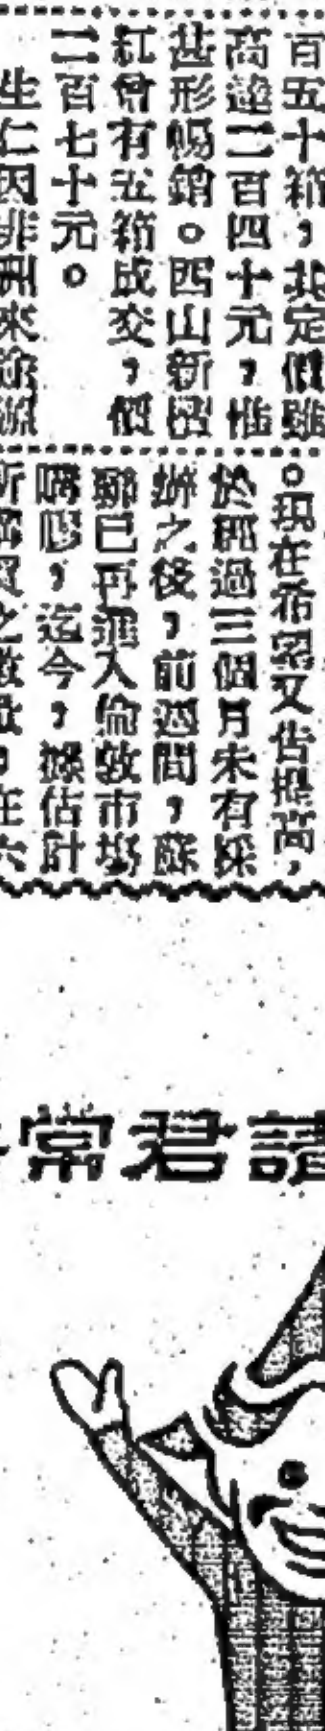 百五十箱，其定價雖
高達二百四十元，惟
甚形暢銷。西山新
紅曾有五箱成交，價
二百七十元。
生仁因非洲來
。現在希望又告提高，
於經過三個月未有採
辦之後，前週間，蘇
聯已再進入倫敦市場
，迄今，據估計
請君常